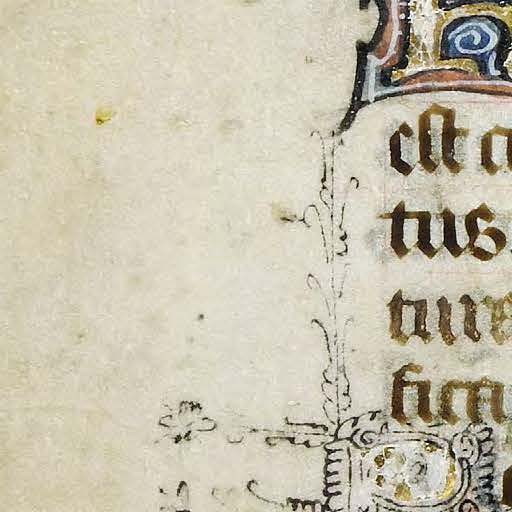 est a
tus
ture
sicu